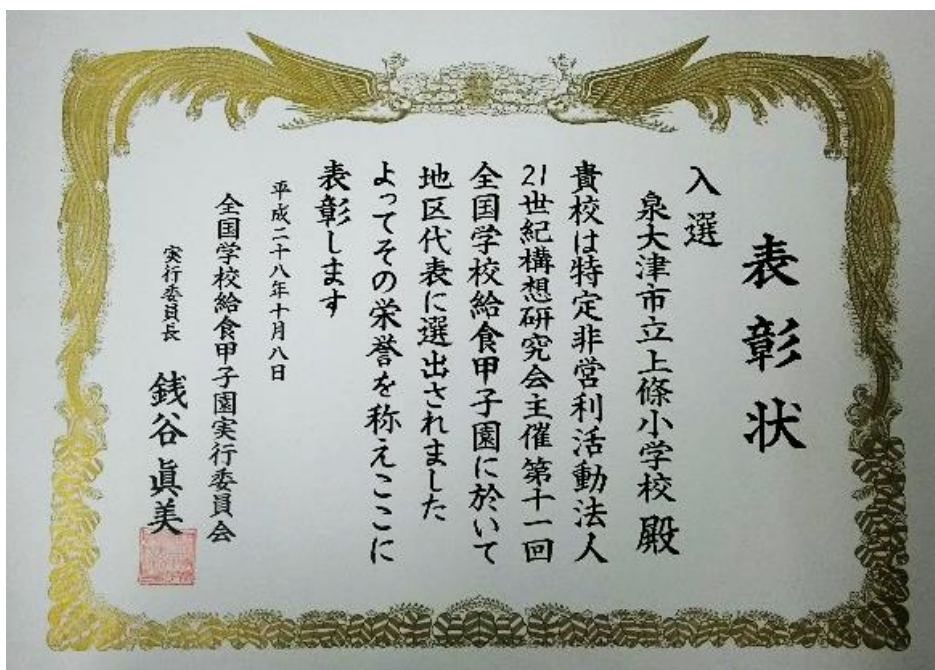 表彰状
入選
泉大津市立上條小学校 殿
貴校は特定非営利活動法人
21世紀構想研究会主催第十一回
全国学校給食甲子園に於いて
地区代表に選出されました
よってその栄誉を称えここに
表彰します
平成二十八年十月八日
全国学校給食甲子園実行委員会
実行委員長 銭谷眞美